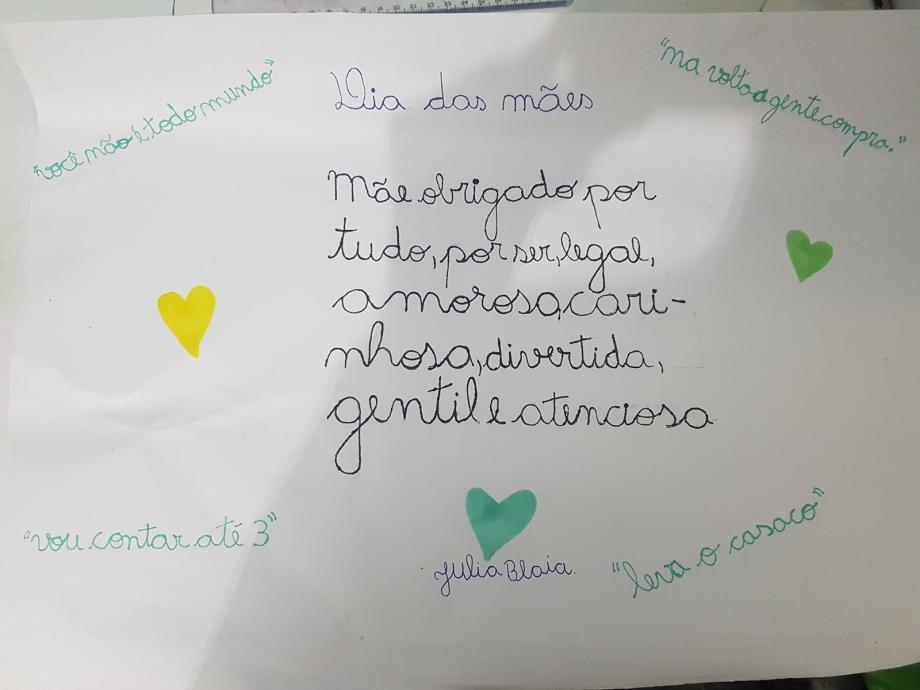 "você não é todo mundo"
Dia das mães
"na volta a gente compra."
Mãe obrigado por
tudo, por ser, legal,
amorosa, cari-
nhosa, divertida,
gentil e atenciosa
"vou contar até 3"
Julia Blaia
"leva o casaco"